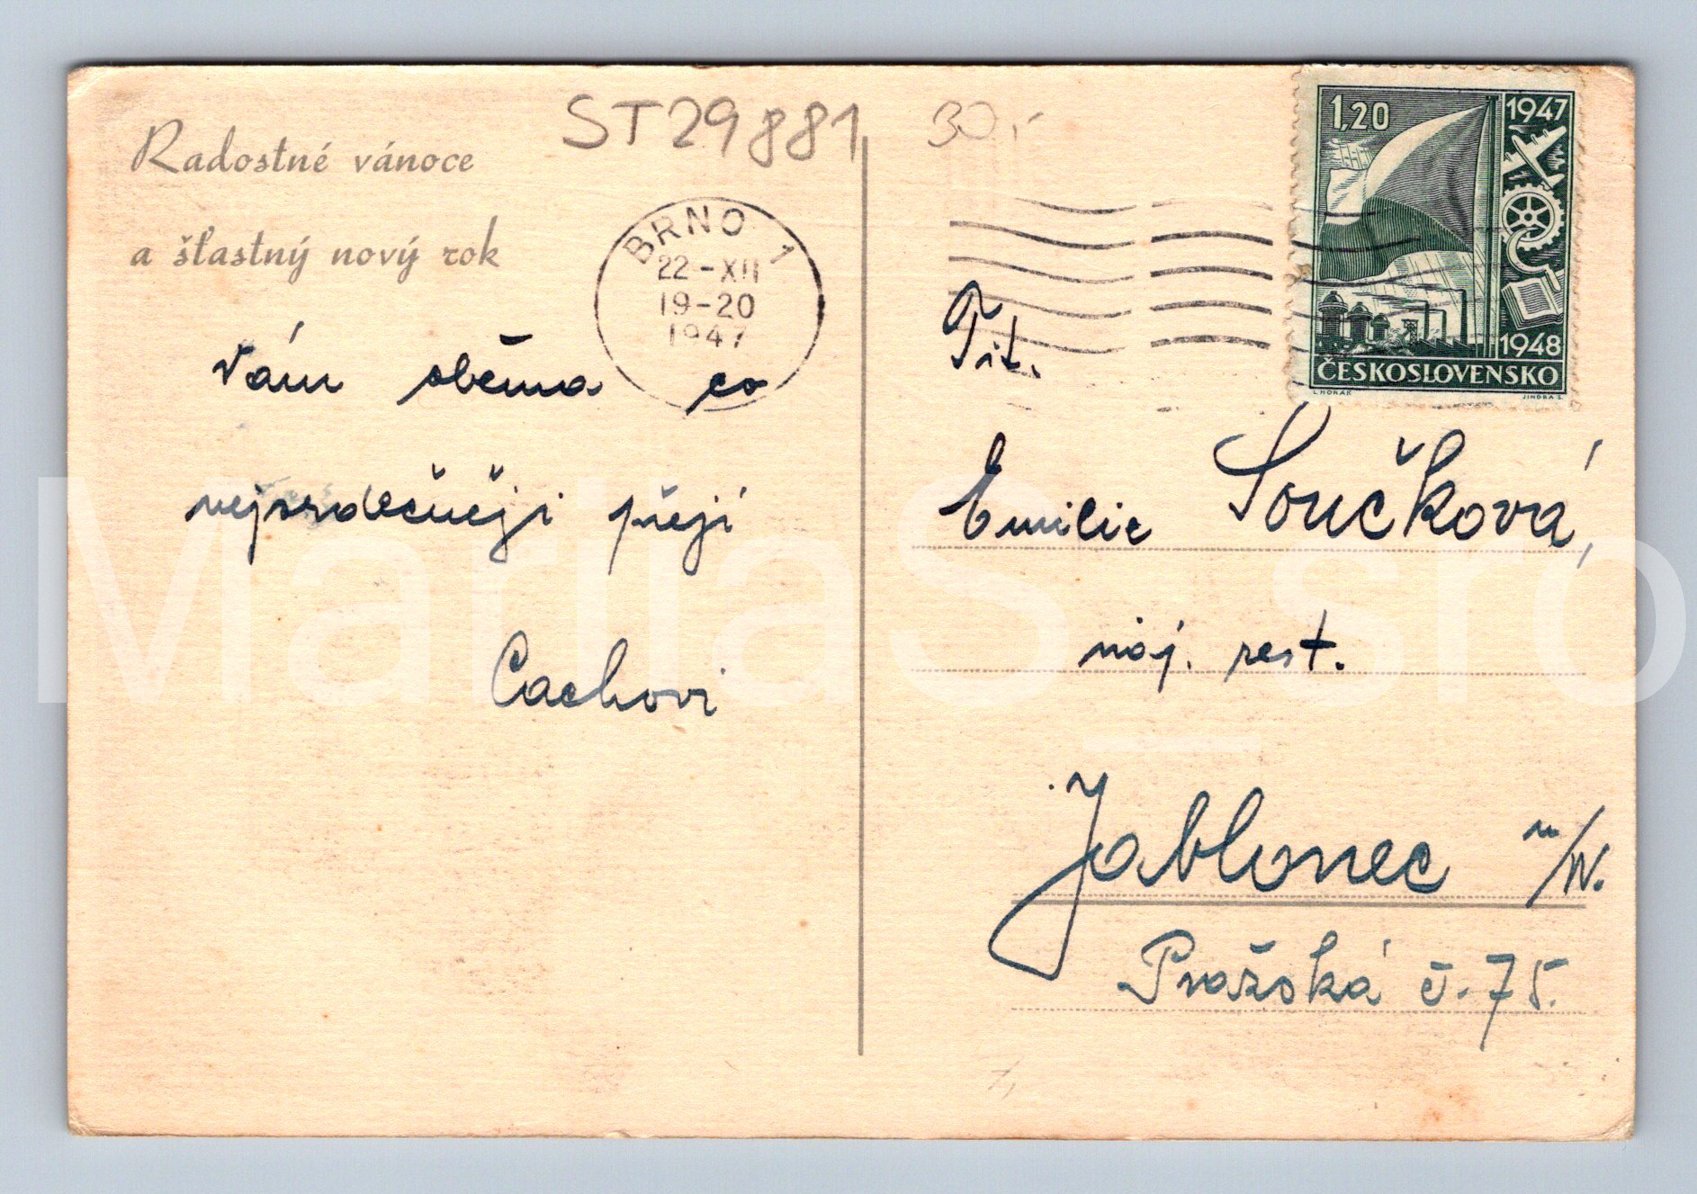 ST29881
30,-
Radostné vánoce
a šťastný nový rok
BRNO 1
22-XII
19-20
1947
1,20
1947
1948
ČESKOSLOVENSKO
L.HORÁK
JINDRA S.
Vám oběma co
nejsrdečněji přejí
Cachovi
Tit.
Emilie Součková,
náj. rest.
Jablonec n/N.
Pražská č. 75.
Marijas_sro